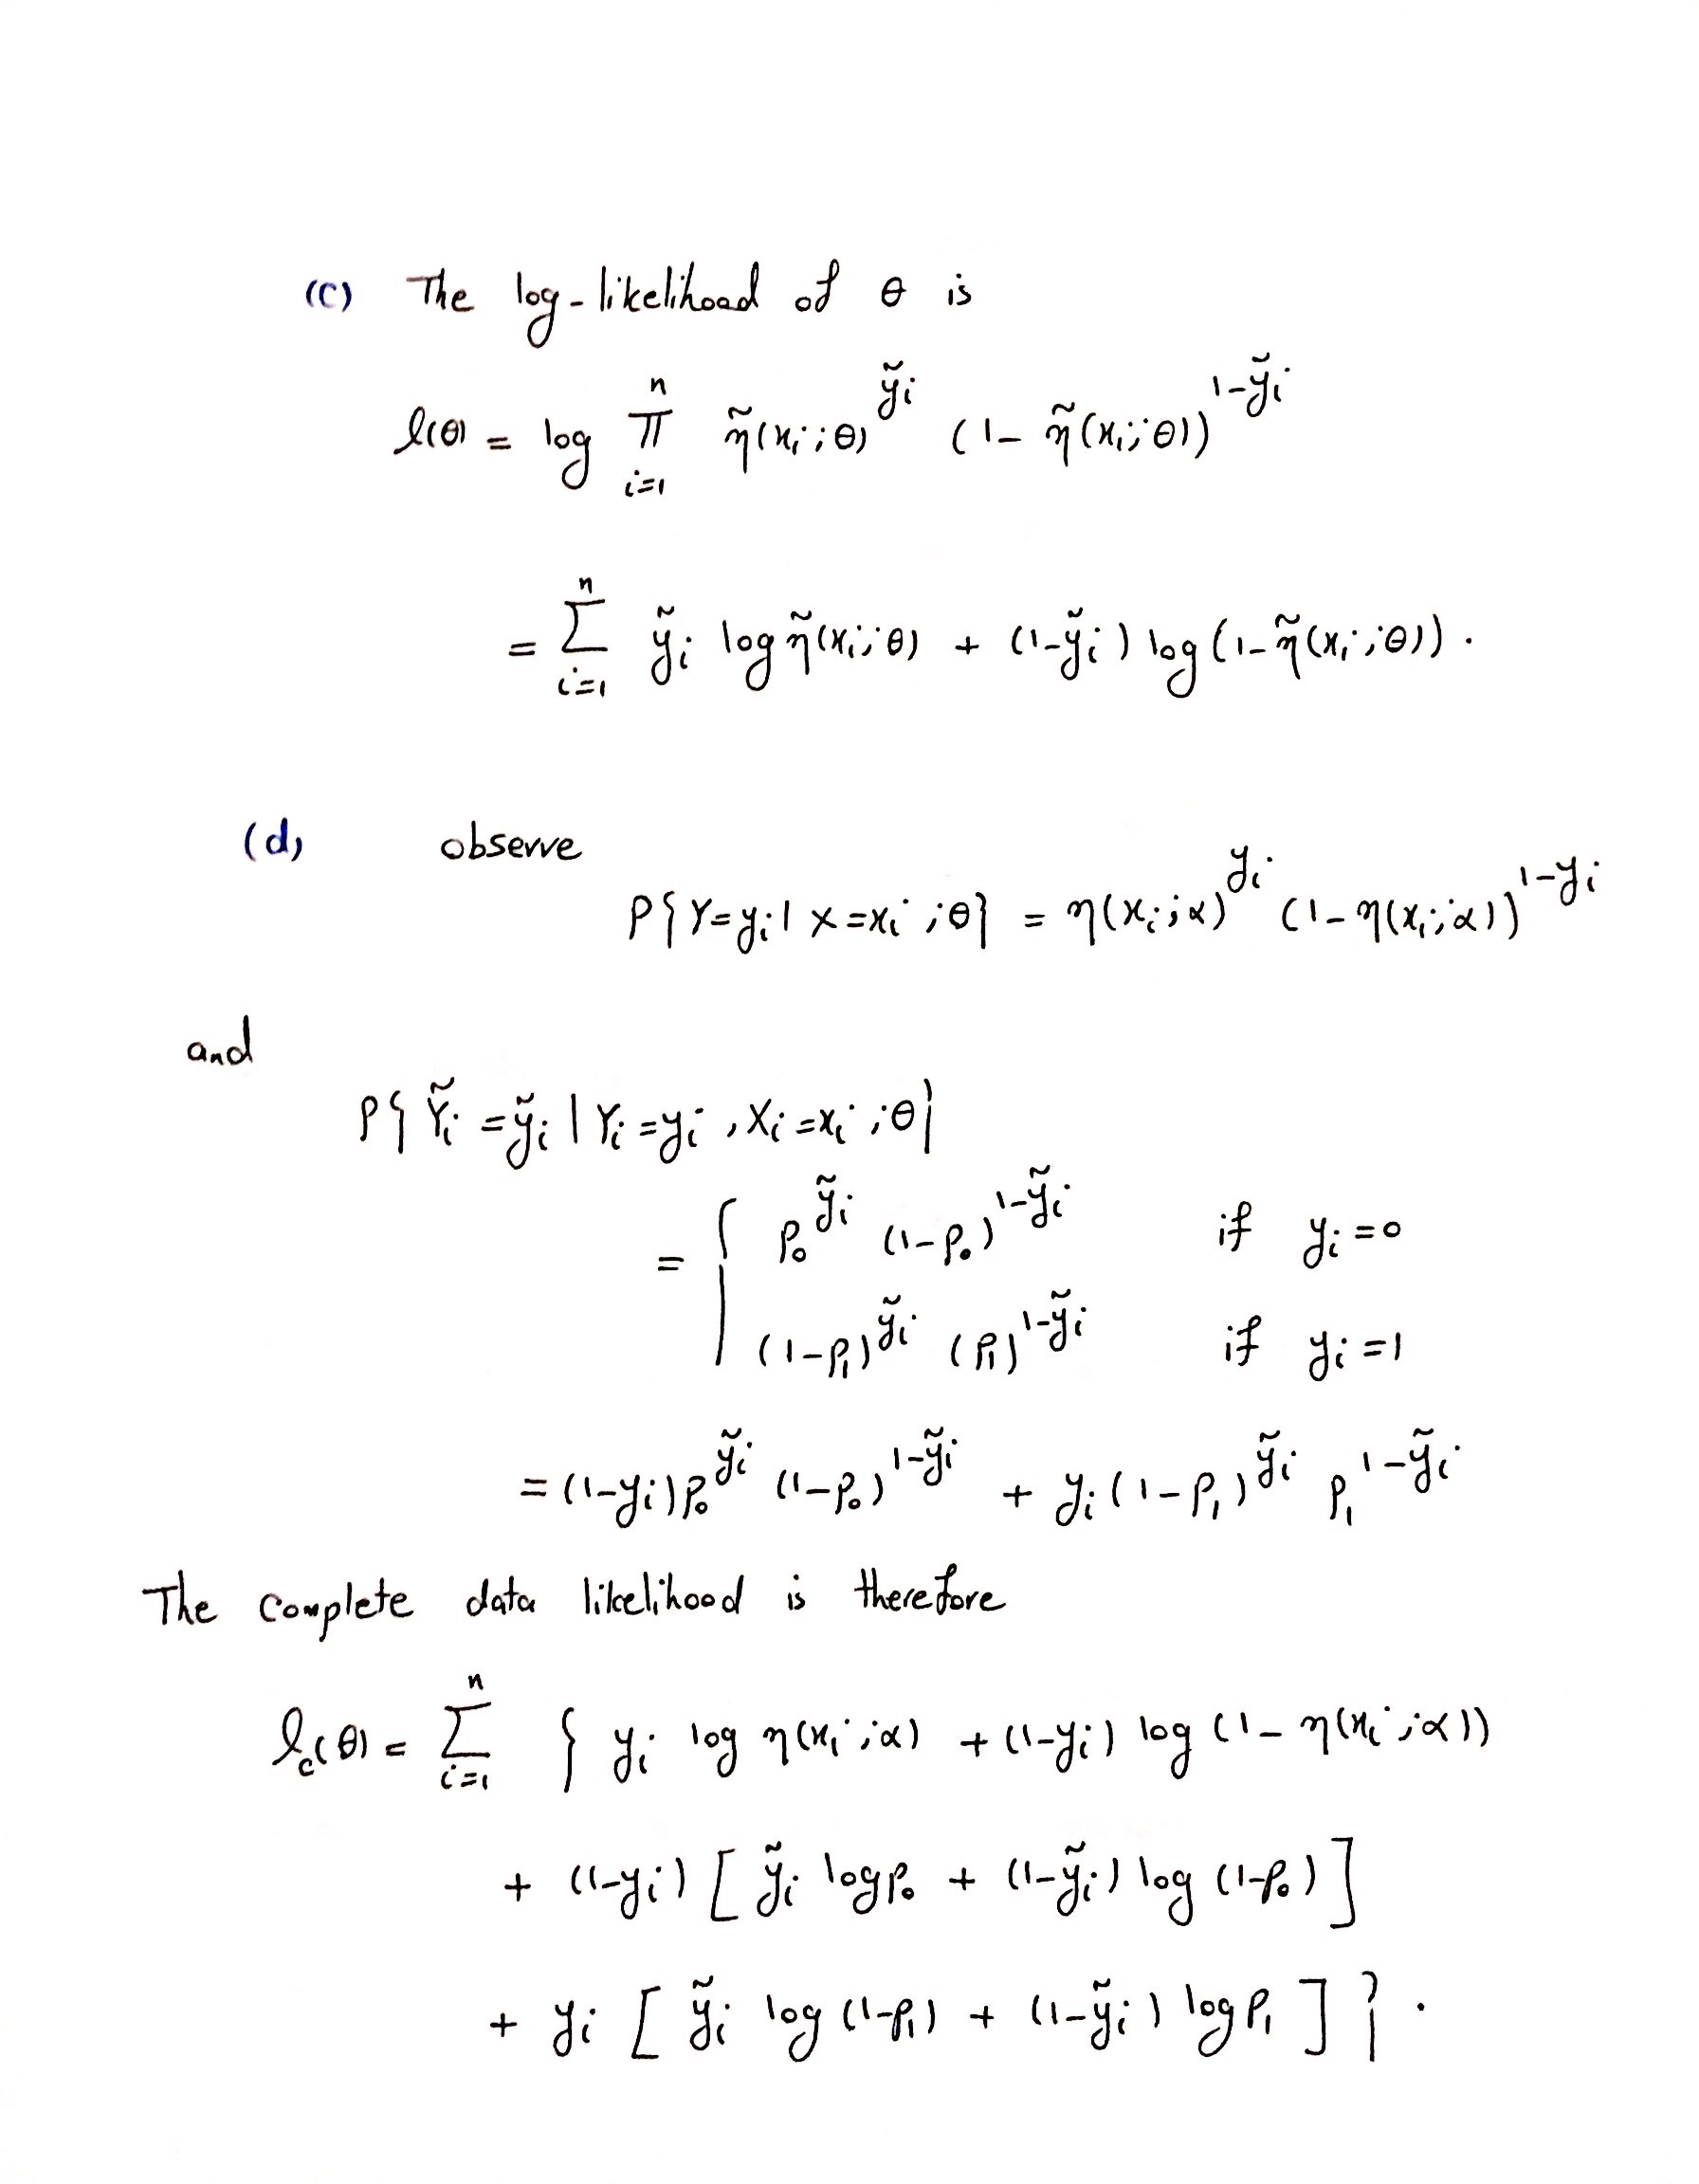 (c) The log-likelihood of θ is
l(θ) = log ∏_{i=1}^{n} η̃(x_i;θ)^{ỹ_i} (1-η̃(x_i;θ))^{1-ỹ_i}
= ∑_{i=1}^{n} ỹ_i log η̃(x_i;θ) + (1-ỹ_i) log(1-η̃(x_i;θ)).
(d) observe
P{Y=y_i | X=x_i ;θ} = η(x_i;α)^{y_i} (1-η(x_i;α))^{1-y_i}
and
P{Ỹ_i=ỹ_i | Y_i=y_i, X_i=x_i ;θ}
= { p_0^{ỹ_i} (1-p_0)^{1-ỹ_i} if y_i=0
(1-p_1)^{ỹ_i} (p_1)^{1-ỹ_i} if y_i=1
= (1-y_i)p_0^{ỹ_i} (1-p_0)^{1-ỹ_i} + y_i(1-p_1)^{ỹ_i} p_1^{1-ỹ_i}
The complete data likelihood is therefore
l_c(θ) = ∑_{i=1}^{n} { y_i log η(x_i;α) + (1-y_i) log(1-η(x_i;α))
+ (1-y_i) [ỹ_i log p_0 + (1-ỹ_i) log(1-p_0)]
+ y_i [ỹ_i log(1-p_1) + (1-ỹ_i) log p_1] }.